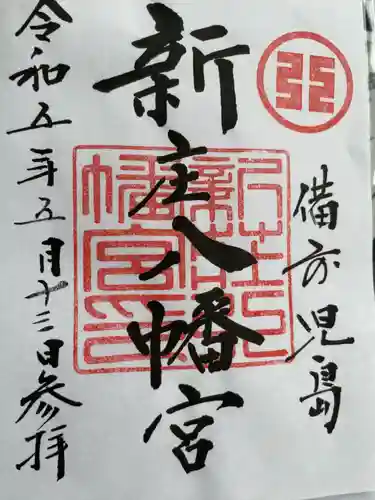 備前児島
新庄八幡宮
新庄八幡宮印
令和五年五月十三日参拝